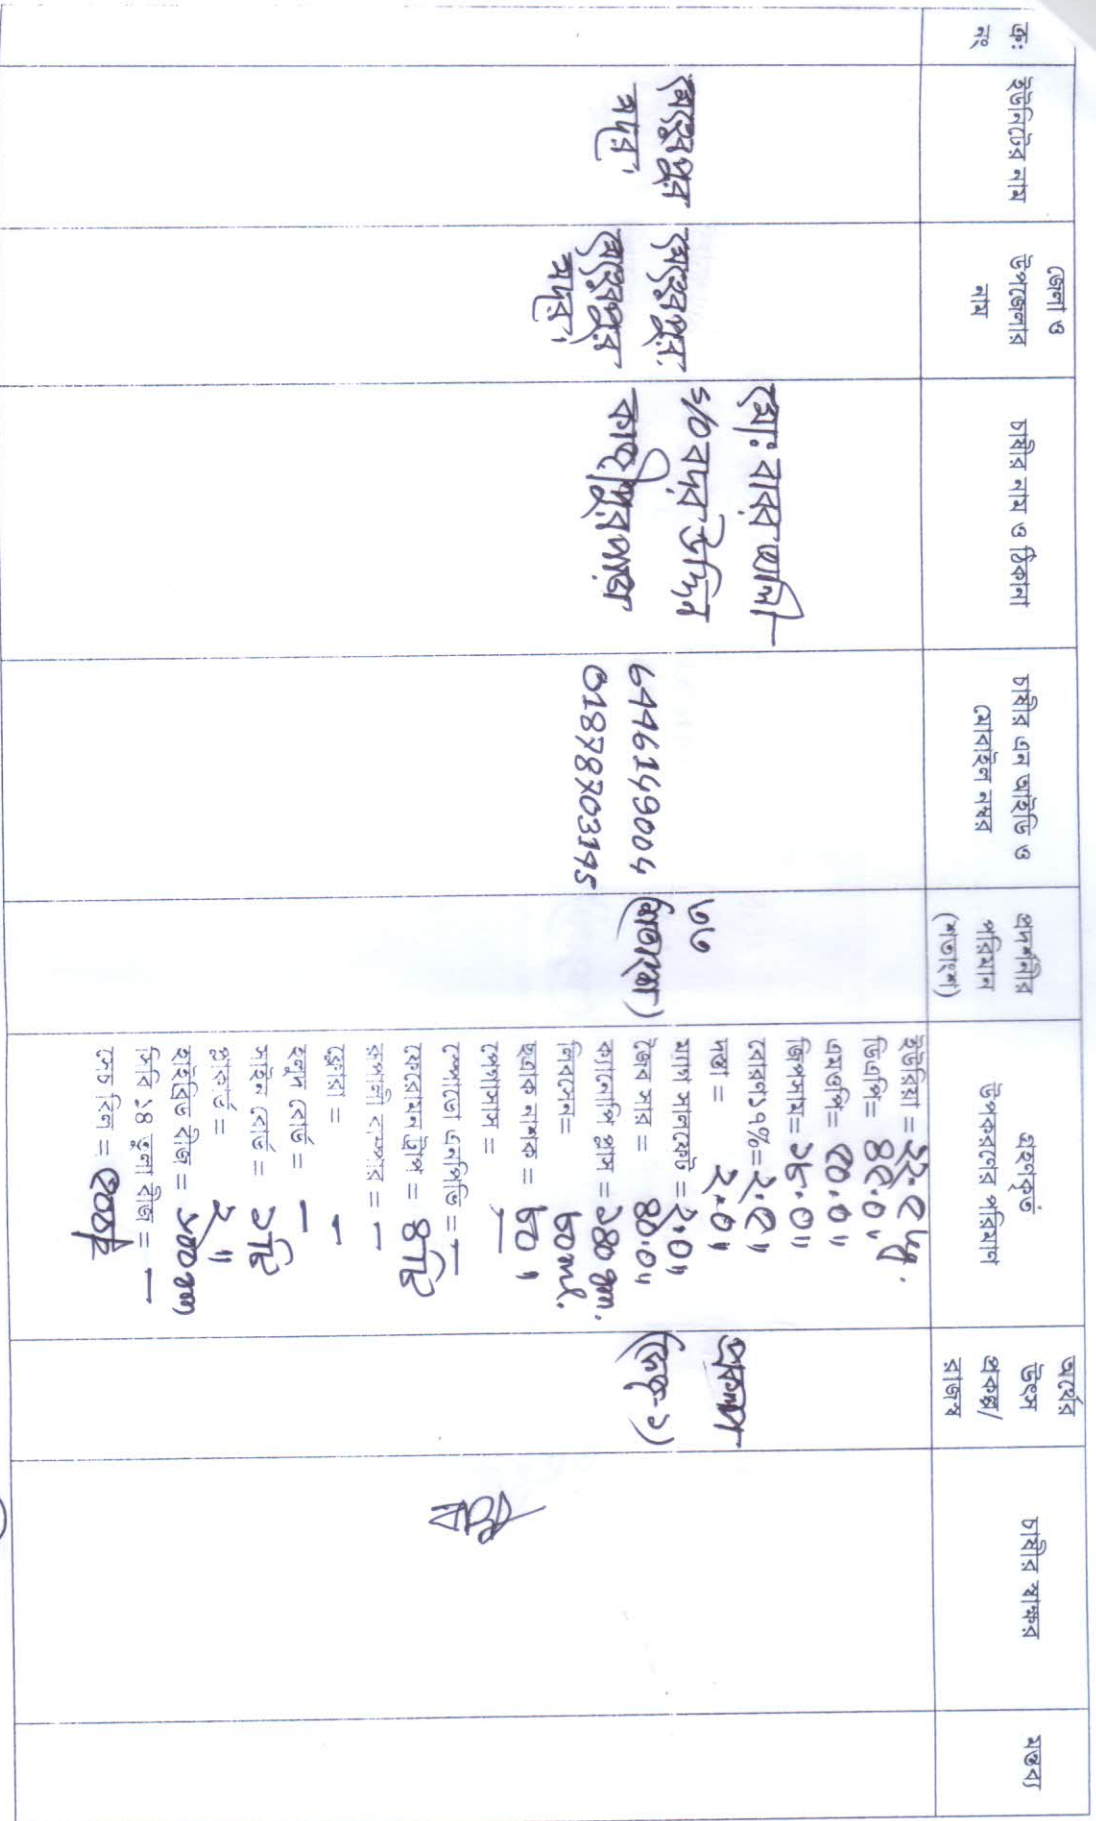 ক্র: নং
ইউনিটের নাম
জেলা ও উপজেলার নাম
চাষীর নাম ও ঠিকানা
চাষীর এন আইডি ও মোবাইল নম্বর
প্রদর্শনীর পরিমান (শতাংশ)
গ্রহণকৃত উপকরণের পরিমাণ
অর্থের উৎস প্রকল্প/রাজস্ব
চাষীর স্বাক্ষর
মন্তব্য
মেহেরপুর
সদর।
মেহেরপুর।
মেহেরপুর
সদর।
মো: বাবর আলি
S/O বদর উদ্দিন
01878703195
৩৩
ইউরিয়া = ২২.৫ kg.
ডিএপি = ৪৫.০ "
এমওপি = ৫০.০ "
জিপসাম = ২৮.০ "
বোরণ১৭% = ২.৫ "
দস্তা = ২.০ "
ম্যাগ সালফেট = ২.০ "
জৈব সার = ৪০.০ "
ক্যানোপি প্লাস = ১৪০ gm.
লিবসেন = ৮০ ml.
ছত্রাক নাশক = ৮০ "
পেগাসাস = —
স্পোডো এনপিভি = —
ফেরোমন ট্রাপ = ৪টি
রুপালী বাম্পার = —
ফ্লোরা = —
হলুদ বোর্ড = —
সাইন বোর্ড = ১টি
প্লাকার্ড = ২ "
হাইব্রিড বীজ = ৯০০ gm
সিবি ১৪ তুলা বীজ = —
সেচ বিল =